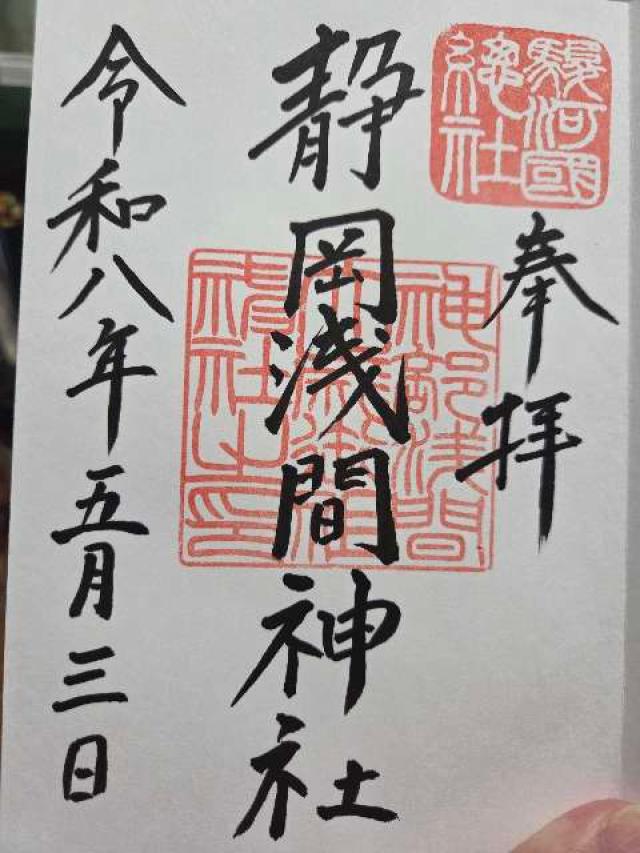 駿河國
總社
奉拝
静岡浅間神社
神部浅間
令和八年五月三日